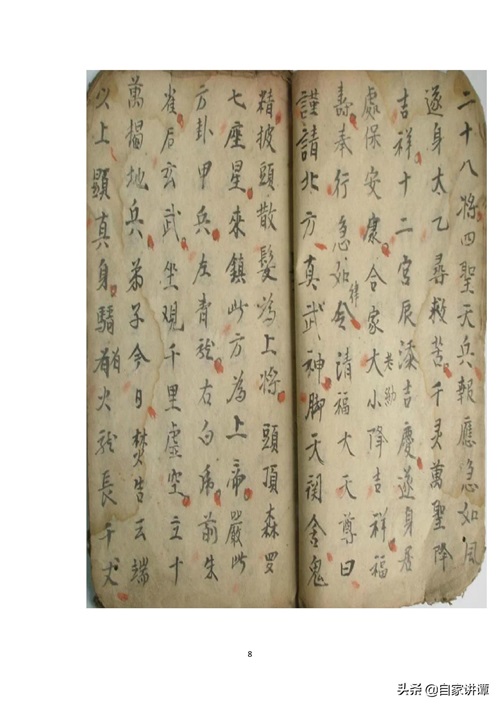 二十八将四聖天兵報應急如月
逐身太乙尋救苦千灵萬聖降
吉祥十二宮辰添吉慶逐身居
處保安康合家老幼大小降吉祥福
壽奉行急如律令請福大天尊曰
謹請北方真武神脚天関金鬼
精披頭散髮為上将頭頂森罗
七座星来鎮此方為上帝嚴此
方卦甲兵左青龍右白虎前朱
雀后玄武坐观千里虚空立十
萬揭地兵弟子今日焚告云端
以上顯真身騎着火龍長千丈
8
头条 @自家讲谭